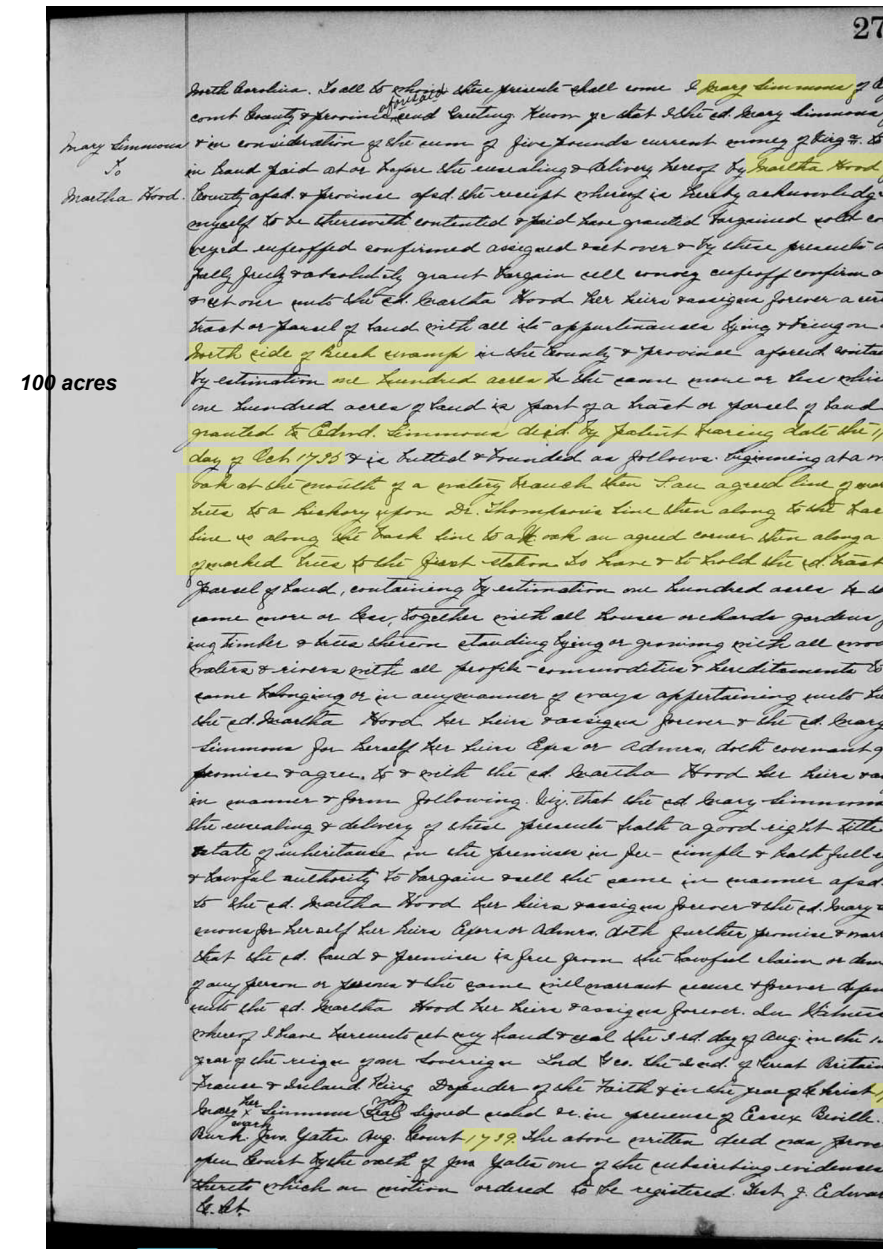 27
North Carolina. To all to whom these presents shall come I Mary Simmons of
aforesaid
County & province and Greeting. Know ye that I the sd. Mary Simmons
Mary Simmons
To
Martha Hood.
& in consideration of the sum of five pounds current money of
in hand paid at or before the ensealing & delivery hereof by Martha Hood
County afsd. & province afsd. the receipt whereof is hereby acknowledg
myself to be therewith contented & paid have granted bargained sold co
veyed enfeoffed confirmed assigned & set over & by these presents
fully freely & absolutely grant bargain sell convey enfeoff confirm
& set over unto the sd. Martha Hood her heirs & assigns forever a
tract or parsel of land with all its appurtenances lying & being on
North side of Beech swamp in the County & province aforesd.
100 acres
by estimation one hundred acres be the same more or less
one hundred acres of land is part of a tract or parsel of land
granted to Edwd. Simmons decd. by patent bearing date the
day of Oct & is butted & bounded as follows. beginning at a
oak at the mouth of a watery branch then an agreed line of mar
trees to a hickory upon Dr. Thompson's line then along to the bac
line along the back line to a oak an agreed corner then along a
of marked trees to the first station To have & to hold the sd. tract
parsel of land, containing by estimation one hundred acres be
same more or less, together with all houses orchards gardens
ing timber & trees thereon standing lying or growing with all
waters & rivers with all profits commodities & hereditaments
same belonging or in any manner of ways appertaining unto
the sd. Martha Hood her heirs & assigns forever & the sd. Mary
Simmons for herself her heirs Exrs or Admrs, doth covenant
promise & agree. to & with the sd. Martha Hood her heirs &
in manner & form following. Viz. that the sd Mary Simmons
the ensealing & delivery of these presents hath a good right title
estate of inheritance in the premises in fee simple & hath full
& lawful authority to bargain & sell the same in manner afsd.
to the sd. Martha Hood her heirs & assigns forever & the sd. Mary
mons for herself her heirs Exrs or Admrs. doth further promise & warr
that the sd. land & premises is free from the lawful claim or
of any person or persons & the same will warrant secure & forever
unto the sd. Martha Hood her heirs & assigns forever. In Witness
whereof I have hereunto set my hand & seal the 3rd. day of Aug. in the
year of the reign of our Sovereign Lord Geo. the 2nd. of Great Britain
France & Ireland King Defender of the Faith & in the year of Christ
her
Mary x Simmons (Seal) Signed seald &c. in presence of Essex Beville.
mark
Jno. Yates. Aug. Court 1739. The above written deed was prov
open Court by the oath of Jno Yates one of the subscribing evidences
thereto which on motion ordered to be registered. Test J. Edwar
C. Ct.